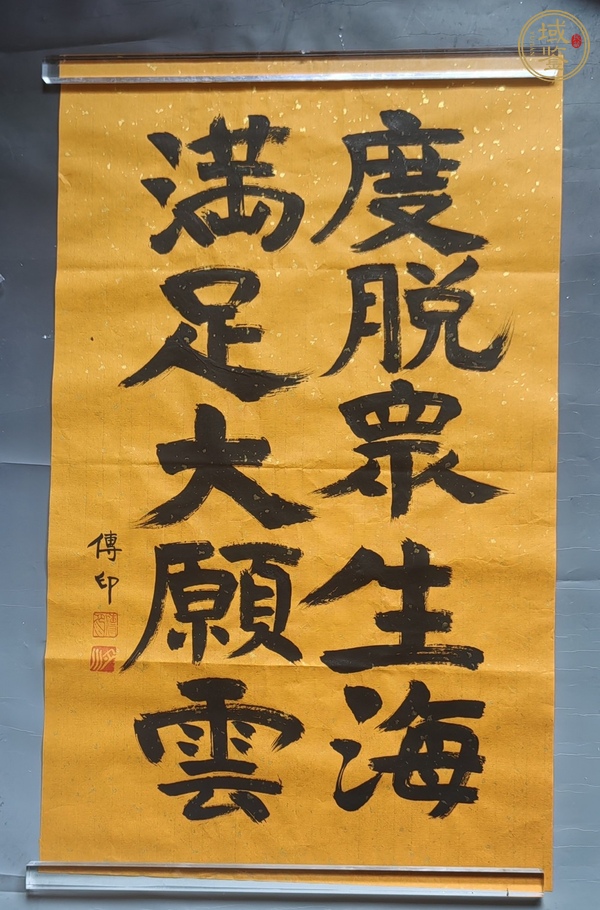 度脱眾生海
满足大願雲
傳印
域鉴